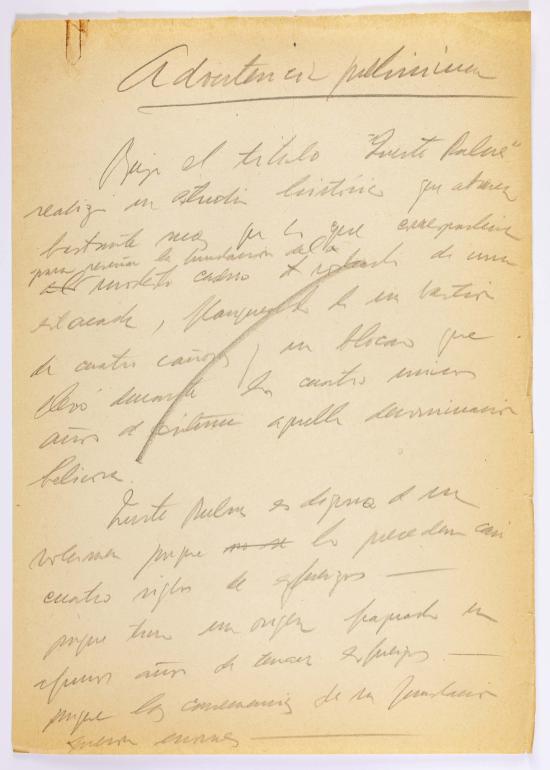 Advertencia preliminar
Bajo el título "Fuerte Bulnes"
realizo un estudio histórico que abarca
bastante más que lo que correspondería
para reseñar la fundación del
modesto caserío rodeado de una
estacada, flanqueado de un bastión
de cuatro cañones y un blocao que
llevó durante los cuatro únicos
años de existencia aquella denominación
belicosa.
Fuerte Bulnes es digno de un
volumen porque lo preceden casi
cuatro siglos de esfuerzos —
porque tuvo un origen fraguado en
algunos años de tenaz esfuerzo —
porque las consecuencias de su fundación
fueron enormes —